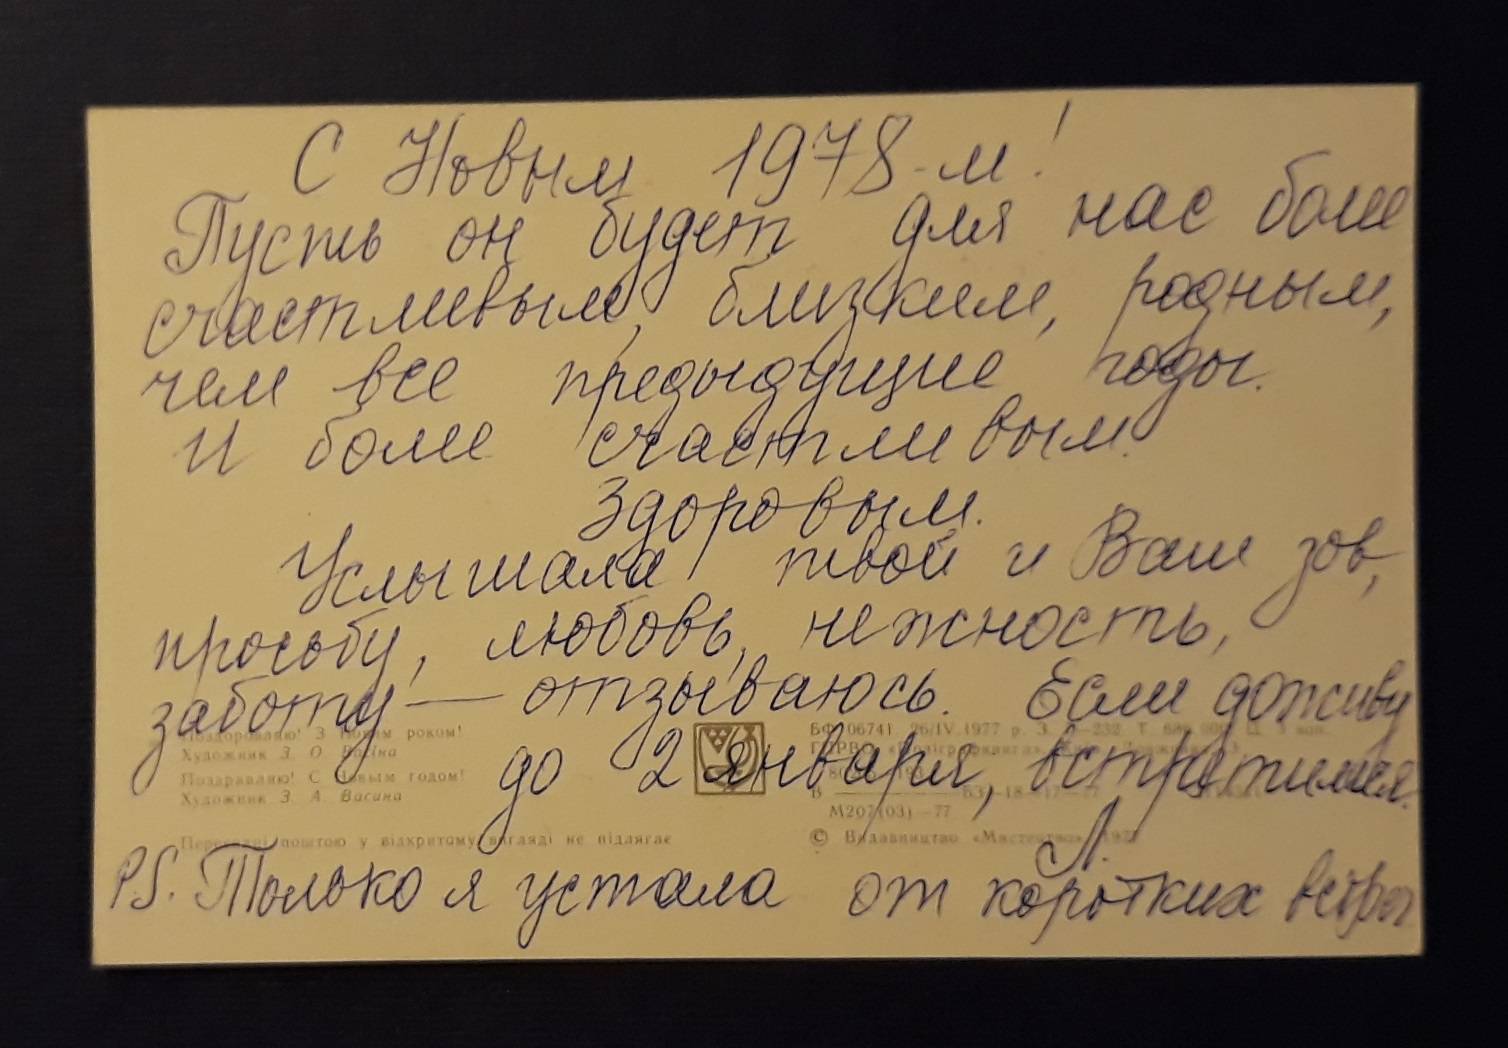 С Новым 1978-м!
Пусть он будет для нас более
счастливым, близким, родным,
чем все предыдущие годы.
И более счастливым.
Здоровым.
Услышала твой и Ваш зов,
просьбу, любовь, нежность,
заботу — отзываюсь. Если доживу
до 2 января, встретимся.
Л.
P.S. Только я устала от коротких встреч
Поздоровляю! З Новим роком!
Художник З. О. Васіна
Поздравляю! С Новым годом!
Художник З. А. Васина
Пересилці поштою у відкритому вигляді не підлягає
БФ 06741. 26/IV.1977 р. З.
М207(03)—77
© Видавництво «Мистецтво», 1977